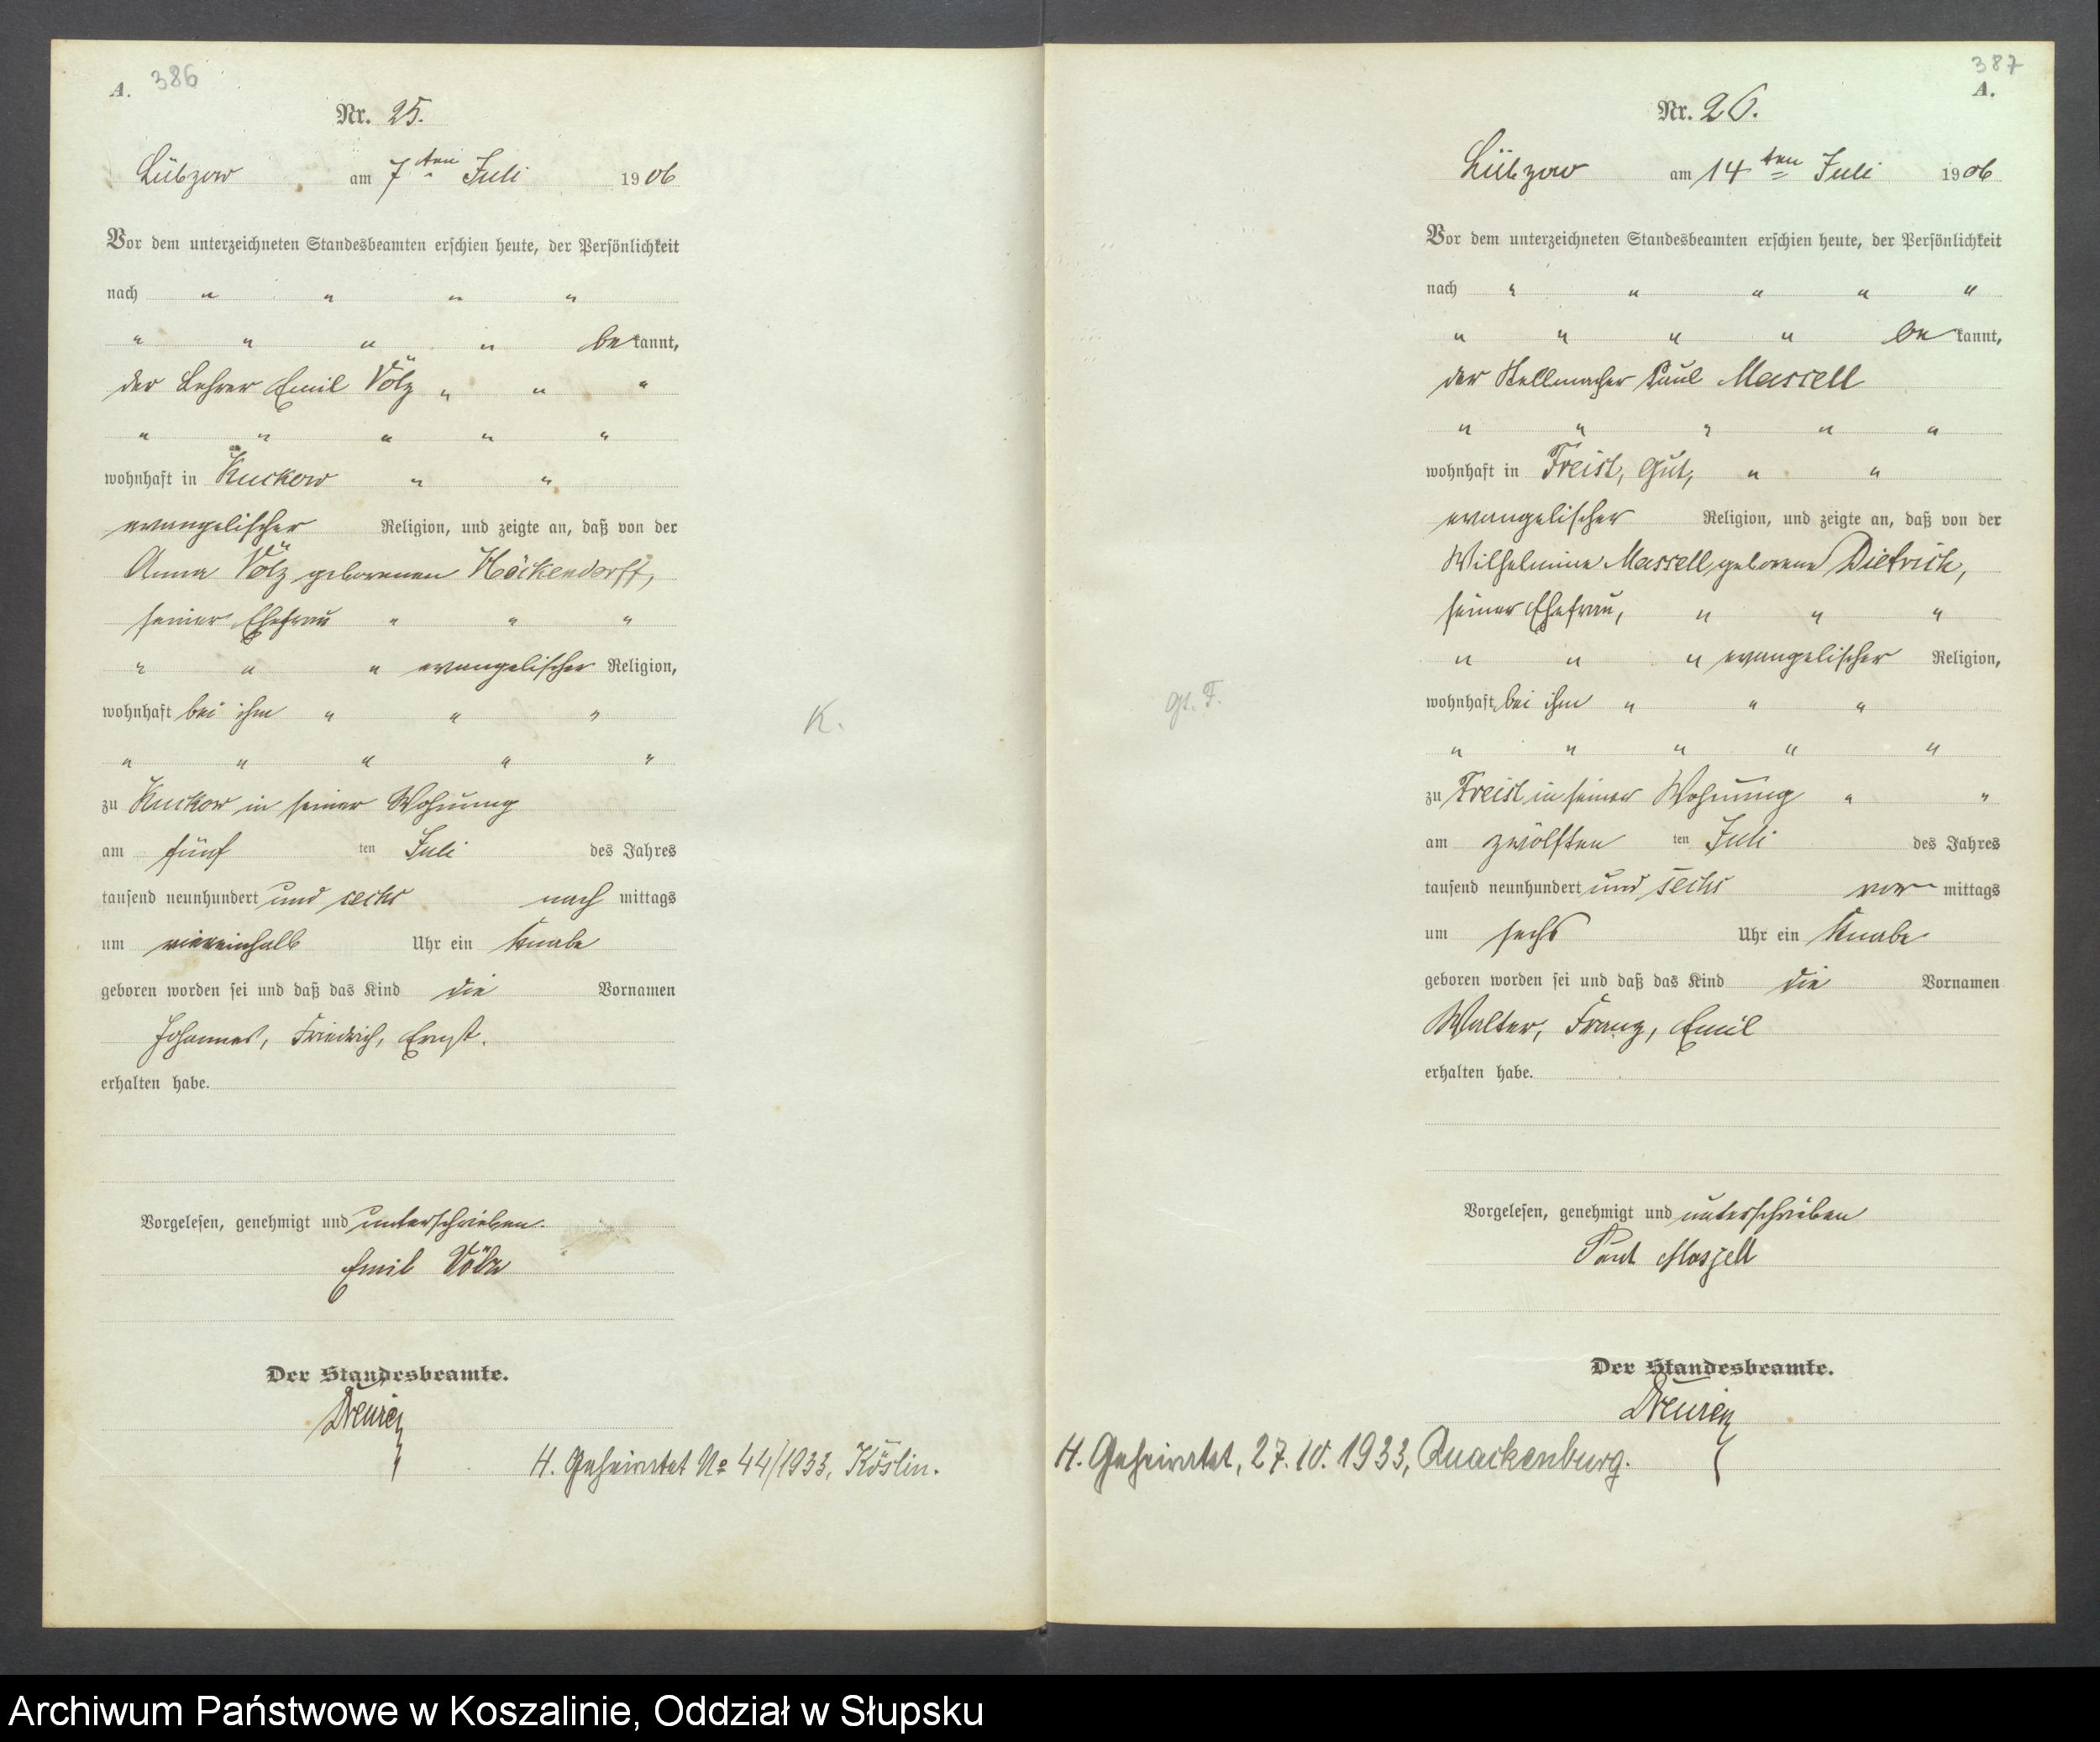 A. 386
Nr. 25.
Lübzow am 7ten Juli 1906
Vor dem unterzeichneten Standesbeamten erschien heute, der Persönlichkeit
nach " " " "
" " " " be kannt,
der Lehrer Emil Völz " " "
" " " " "
wohnhaft in Kuckow " "
evangelischer Religion, und zeigte an, daß von der
Anna Völz geborenen Höckendorff,
seiner Ehefrau " " "
" " " evangelischer Religion,
wohnhaft bei ihm " " "
K.
" " " " "
zu Kuckow in seiner Wohnung
am fünf ten Juli des Jahres
tausend neunhundert und sechs nach mittags
um viereinhalb Uhr ein Knabe
geboren worden sei und daß das Kind die Vornamen
Johannes, Friedrich, Ernst.
erhalten habe.
Vorgelesen, genehmigt und unterschrieben.
Emil Völz
Der Standesbeamte.
H. Geheiratet No 44/1933, Köslin.
387
A.
Nr. 26.
Lübzow am 14ten Juli 1906
Vor dem unterzeichneten Standesbeamten erschien heute, der Persönlichkeit
nach " " " " "
" " " " be kannt,
der Stellmacher Paul Massell
" " " " "
wohnhaft in Freist, Gut, " "
evangelischer Religion, und zeigte an, daß von der
Wilhelmine Massell geborene Dietrich,
seiner Ehefrau, " " "
" " " evangelischer Religion,
gt. F.
wohnhaft bei ihm " " "
" " " " "
zu Freist in seiner Wohnung " "
am zwölften ten Juli des Jahres
tausend neunhundert und sechs vor mittags
um sechs Uhr ein Knabe
geboren worden sei und daß das Kind die Vornamen
Walter, Franz, Emil
erhalten habe.
Vorgelesen, genehmigt und unterschrieben
Paul Massell
Der Standesbeamte.
H. Geheiratet, 27.10.1933, Quackenburg.
Archiwum Państwowe w Koszalinie, Oddział w Słupsku